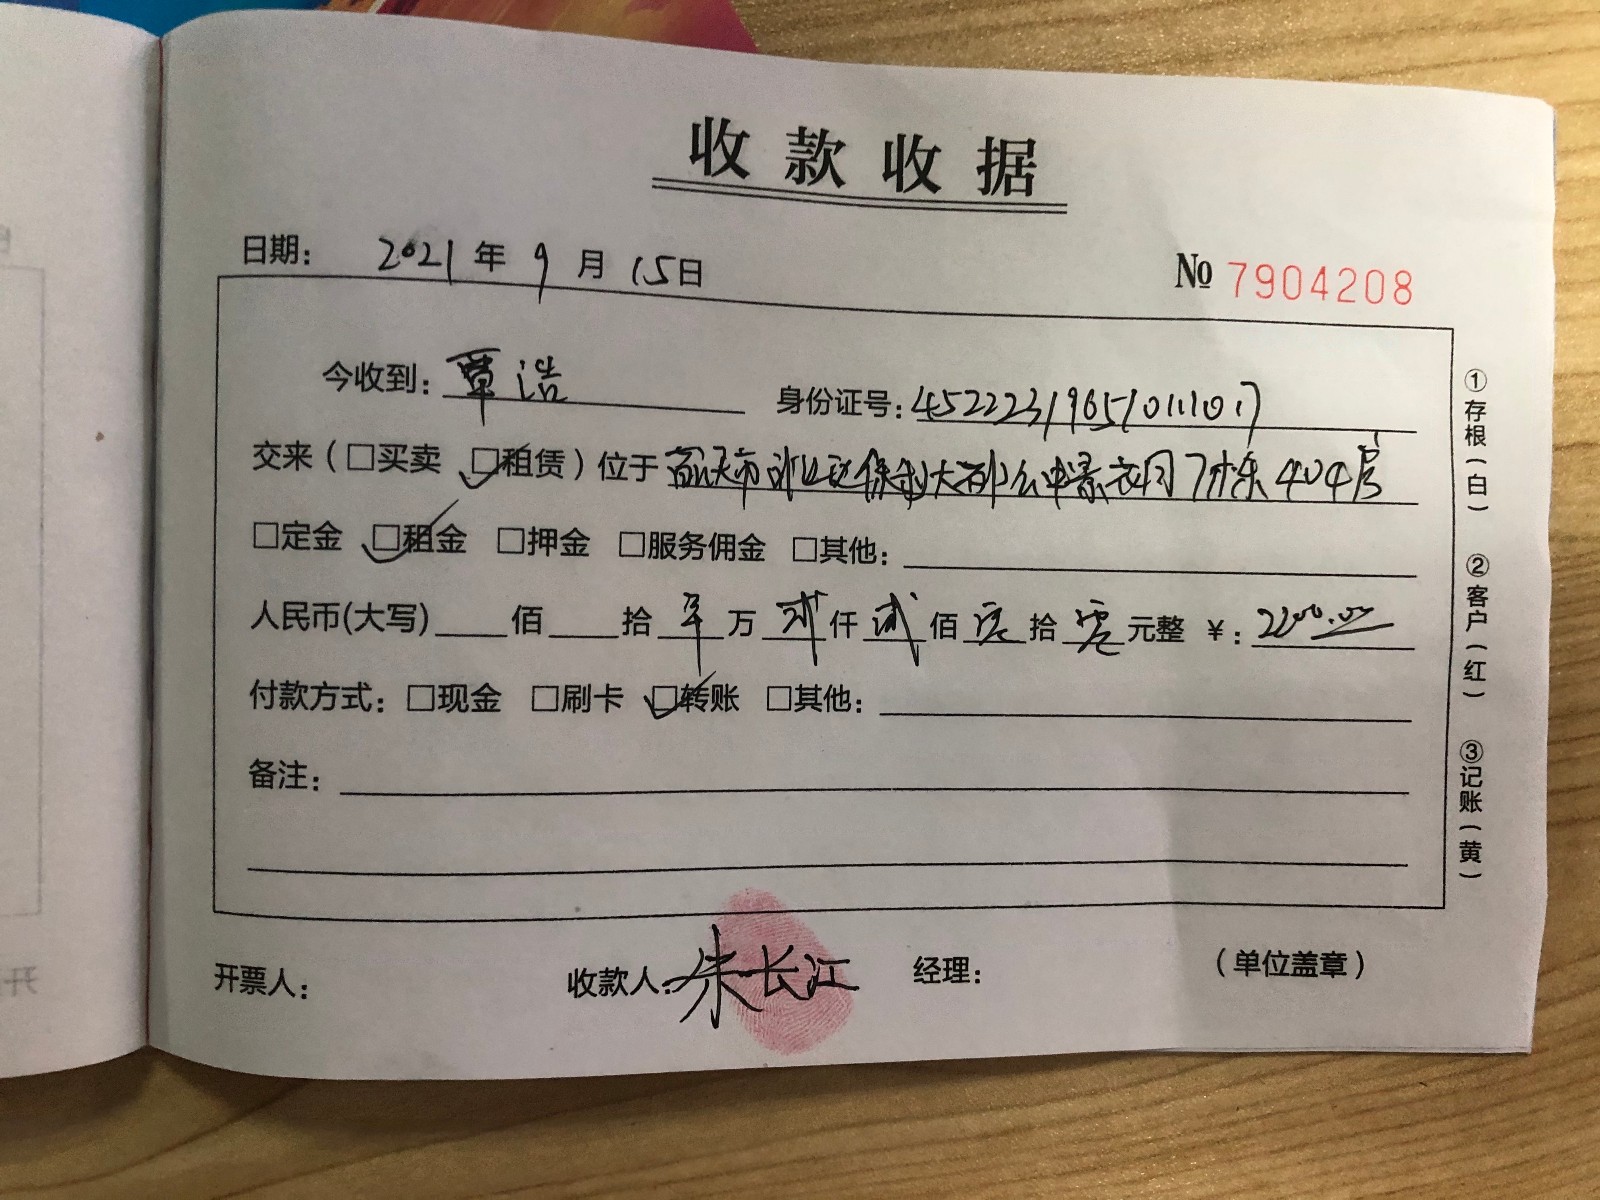 收款收据
日期： 2021 年 9 月 15 日
№ 7904208
今收到：覃浩 身份证号：
交来（□买卖 ☑租赁）位于 7栋404房
□定金 ☑租金 □押金 □服务佣金 □其他：
人民币(大写) 佰 拾 零 万 贰 仟 贰 佰 零 拾 零 元整 ￥：2200.00
付款方式：□现金 □刷卡 ☑转账 □其他：
备注：
开票人： 收款人：朱长江 经理： （单位盖章）
①存根（白） ②客户（红） ③记账（黄）